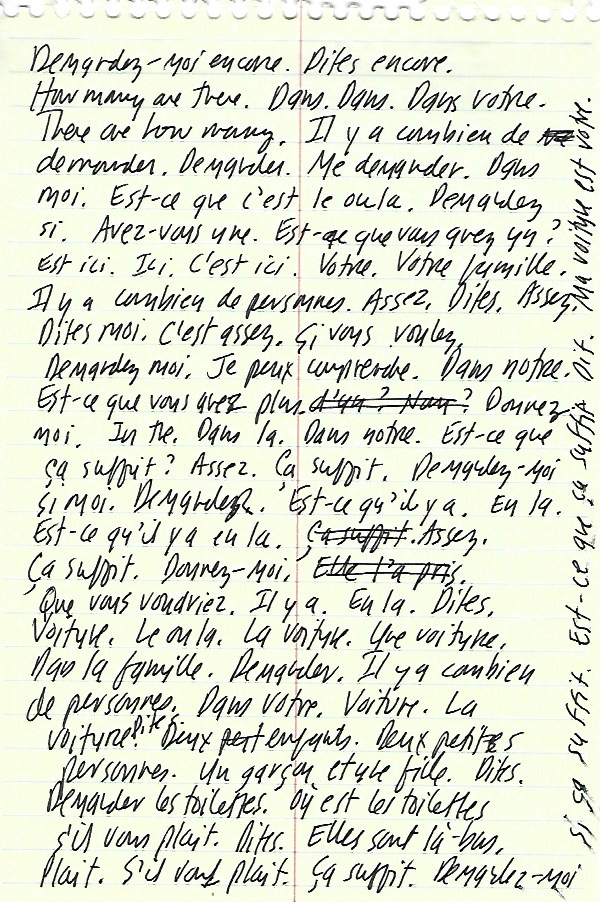 Demandez-moi encore. Dites encore.
How many are there. Dans. Dans. Dans votre.
There are how many. Il y a combien de
demander. Demander. Me demander. Dans
moi. Est-ce que c'est le ou la. Demandez
si. Avez-vous une. Est-ce que vous avez un?
Est ici. Ici. C'est ici. Votre. Votre famille.
Il y a combien de personnes. Assez. Dites. Assez.
Dites moi. C'est assez. Si vous voulez.
Demandez moi. Je peux comprendre. Dans notre.
Est-ce que vous avez plus d'un? Non? Donnez-
moi. In the. Dans la. Dans notre. Est-ce que
ça suffit? Assez. Ça suffit. Demandez-moi
Si moi. Demandez. Est-ce qu'il y a. En la.
Est-ce qu'il y a en la. Ça suffit. Assez.
Ça suffit. Donnez-moi. Elle l'a pris.
Que vous voudriez. Il y a. En la. Dites.
Voiture. Le ou la. La voiture. Une voiture.
Dans la famille. Demander. Il y a combien
de personnes. Dans votre. Voiture. La
voiture. Dites. Deux enfants. Deux petites
personnes. Un garçon et une fille. Dites.
Demander les toilettes. Où est les toilettes
s'il vous plait. Dites. Elles sont là-bas.
Plait. S'il vous plait. Ça suffit. Demandez-moi
si ça suffit. Est-ce que ça suffit. Dit. Ma voiture est votre.